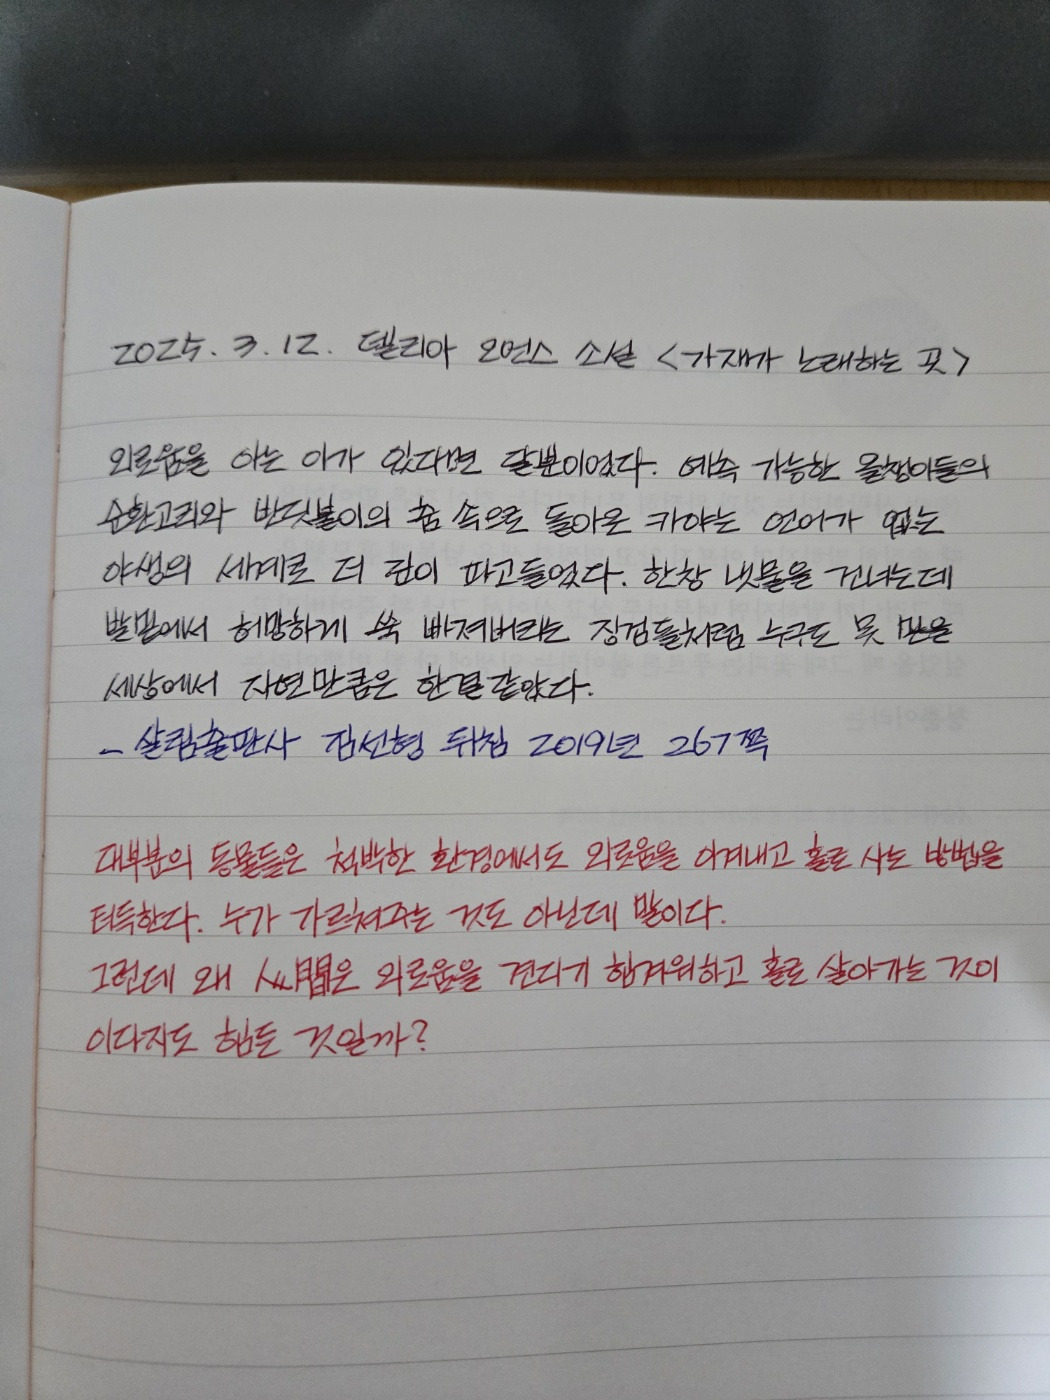 2025. 3. 12. 델리아 오언스 소설 <가재가 노래하는 곳>
외로움을 아는 이가 있다면 달뿐이었다. 예측 가능한 올챙이들의
순환고리와 반딧불이의 춤 속으로 돌아온 카야는 언어가 없는
야생의 세계로 더 깊이 파고들었다. 한창 냇물을 건너는데
발밑에서 허망하게 쑥 빠져버리는 징검돌처럼 누구도 못 믿을
세상에서 자연만큼은 한결같았다.
- 살림출판사 김선형 뒤침 2019년 267쪽
대부분의 동물들은 척박한 환경에서도 외로움을 이겨내고 홀로 사는 방법을
터득한다. 누가 가르쳐주는 것도 아닌데 말이다.
그런데 왜 은 외로움을 견디기 힘겨워하고 홀로 살아가는 것이
이다지도 힘든 것일까?